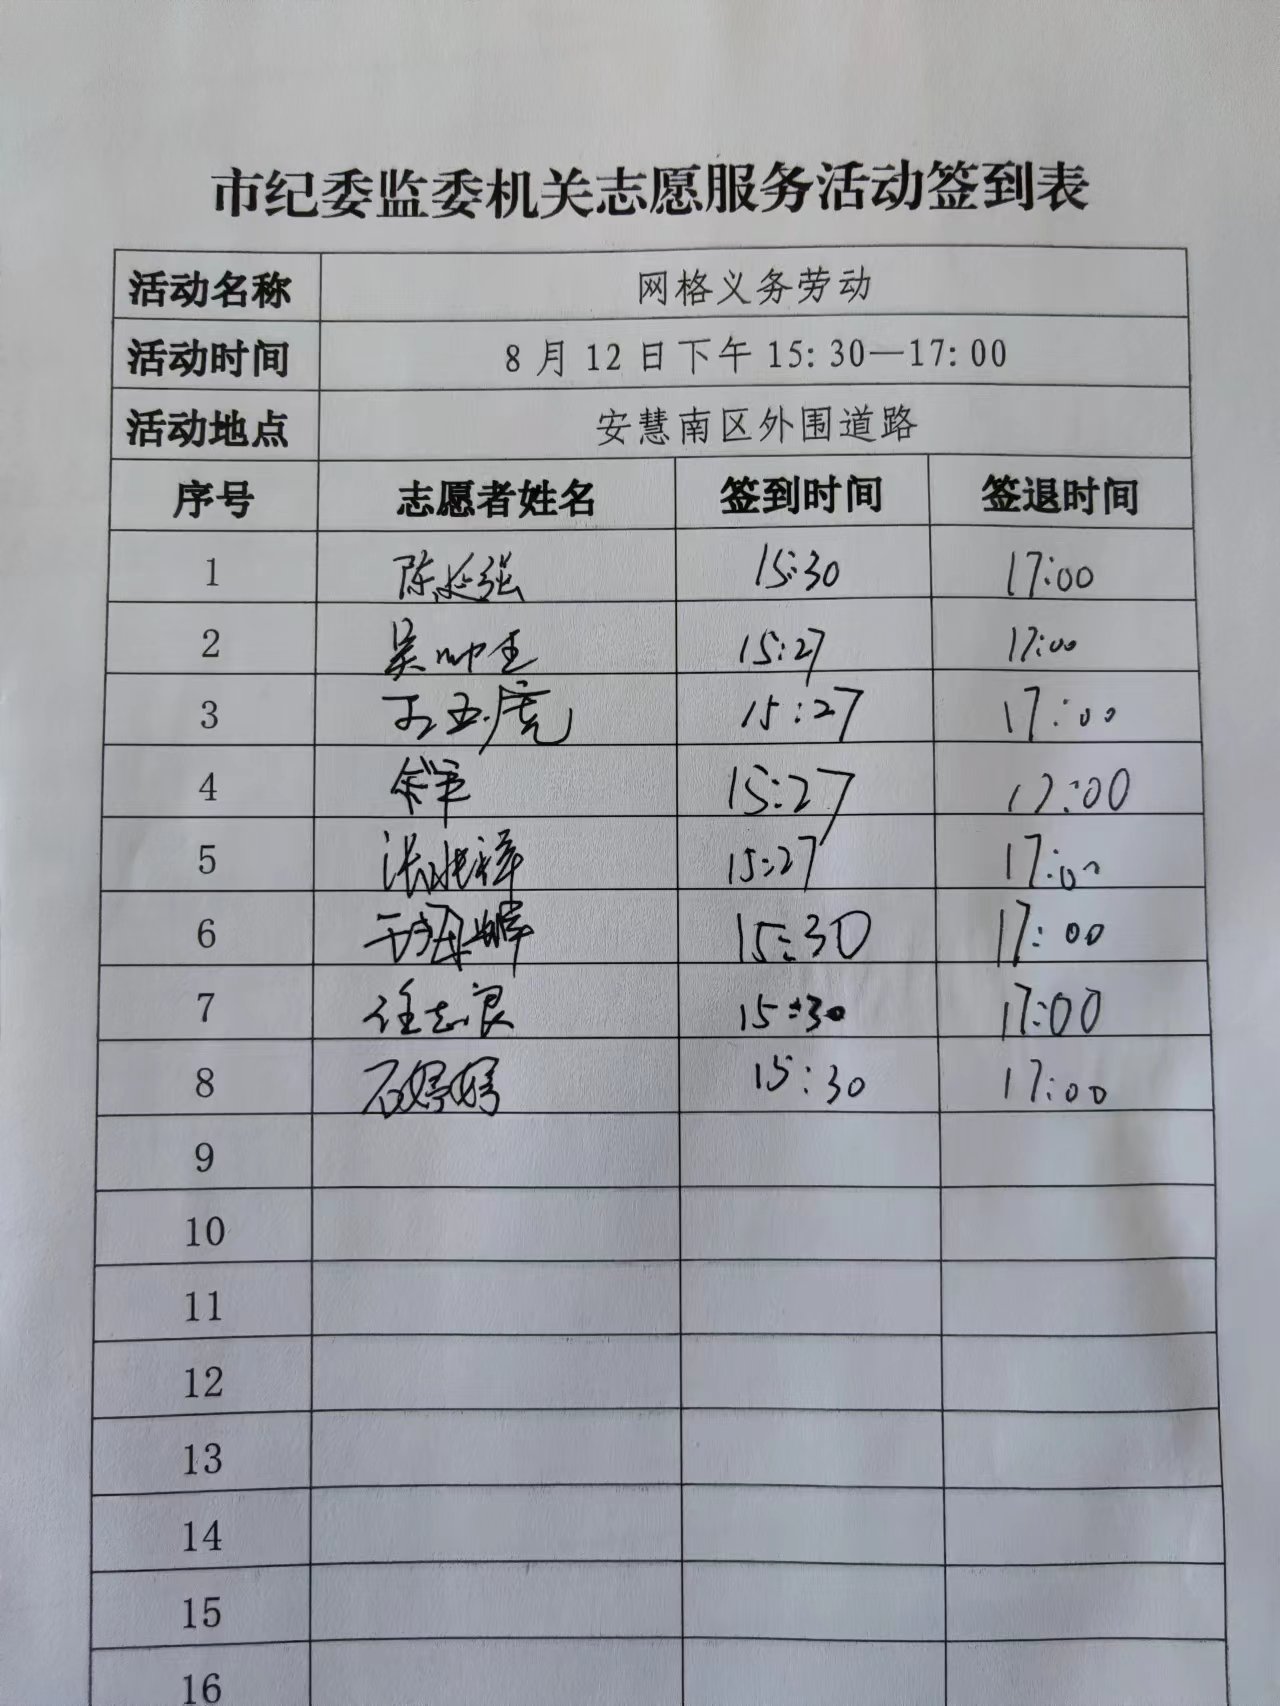 市纪委监委机关志愿服务活动签到表
活动名称 网格义务劳动
活动时间 8月12日下午15:30—17:00
活动地点 安慧南区外围道路
序号 志愿者姓名 签到时间 签退时间
1 陈延强 15:30 17:00
2 吴帅 15:27 17:00
3 五虎 15:27 17:00
4 15:27 17:00
5 张兆祥 15:27 17:00
6 15:30 17:00
7 任志良 15:30 17:00
8 石婷婷 15:30 17:00
9
10
11
12
13
14
15
16